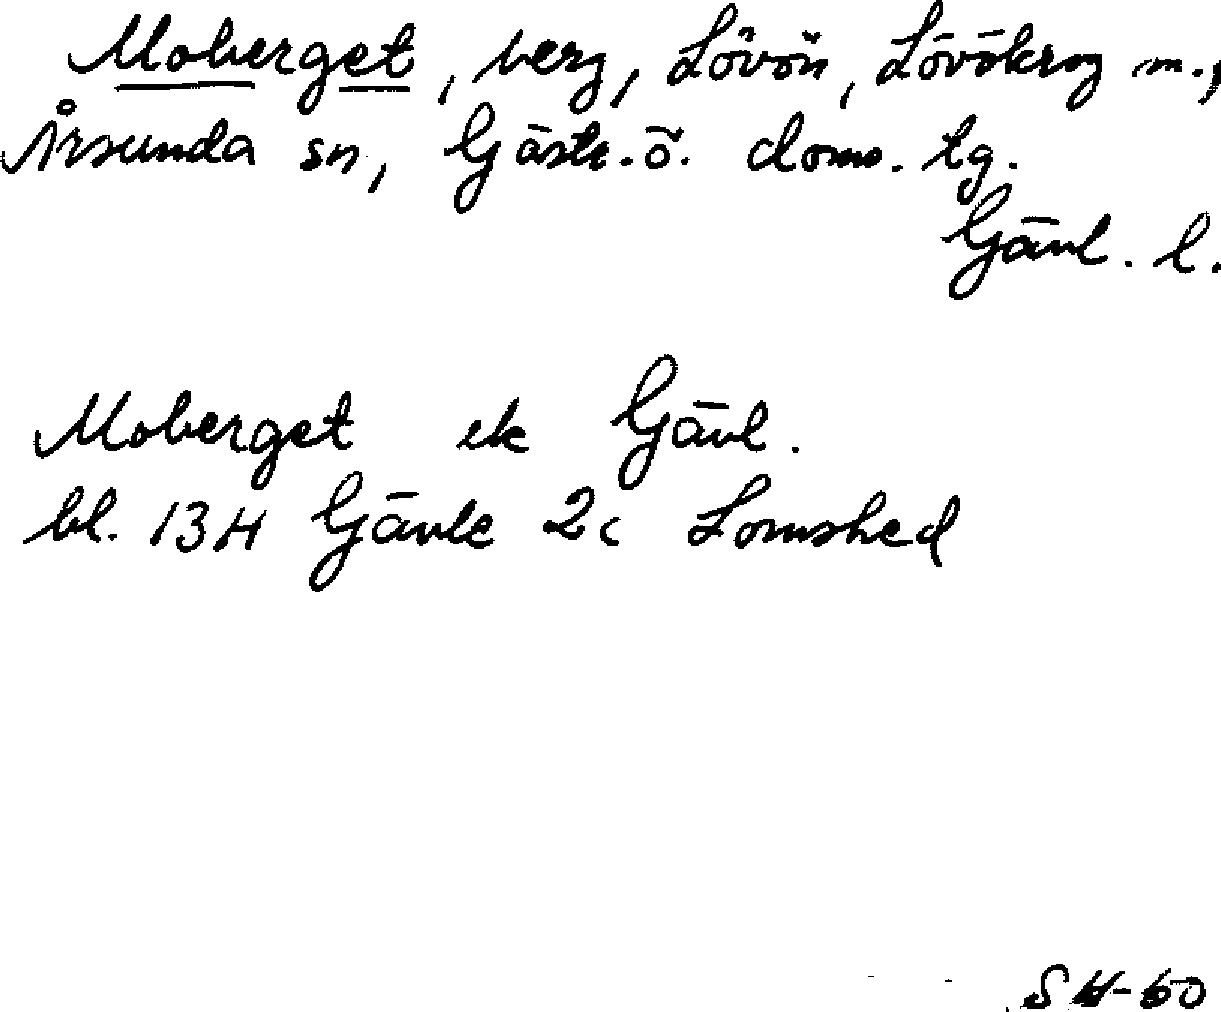 Moberget, berg, Lövön, Lövökrog m.,
Årsunda sn, Gästr. ö. doms. tg.
Gävl. l.
Moberget ek Gävl.
bl. 13H Gävle 2c Lomshed
SH-60